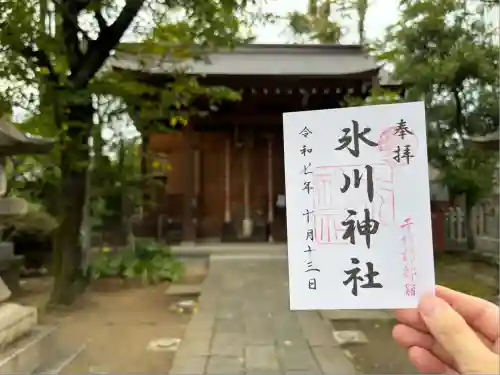 奉拝
氷川神社
令和七年十月十三日